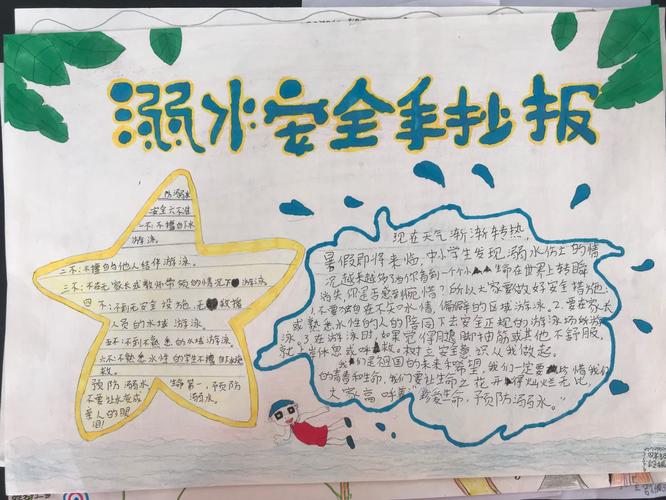 溺水安全手抄报
防溺水
安全六不准
一不：不擅自下水
游泳。
二不：不擅自与他人结伴游泳。
三不：不在无家长或教师带领的情况下游泳。
四不：不到无安全设施、无救援
人员的水域游泳。
五不：不到不熟悉的水域游泳。
六不：不熟悉水性的学生不擅自下水施
救。
预防溺水 生命第一，预防
不要让水变成 溺水。
亲人的眼
泪！
现在天气渐渐转热，
暑假即将来临，中小学生发现溺水伤亡的情
况越来越多，当你看到一个个生命在世界上转瞬
消失，你是否感到惋惜？所以大家要做好安全措施：
1.不要独自在不知水情，偏僻的区域游泳。2.要在家长
或熟悉水性的人的陪同下去安全正规的游泳场所游
泳。3.在游泳时，如果觉得腿脚抽筋或其他不舒服，
就上岸休息或呼救。树立安全意识从我做起。
我们是祖国的未来和希望，我们一定要珍惜我们
的青春和生命，我们要让生命之花开得灿烂无比，
大家高呼：“珍爱生命，预防溺水。”